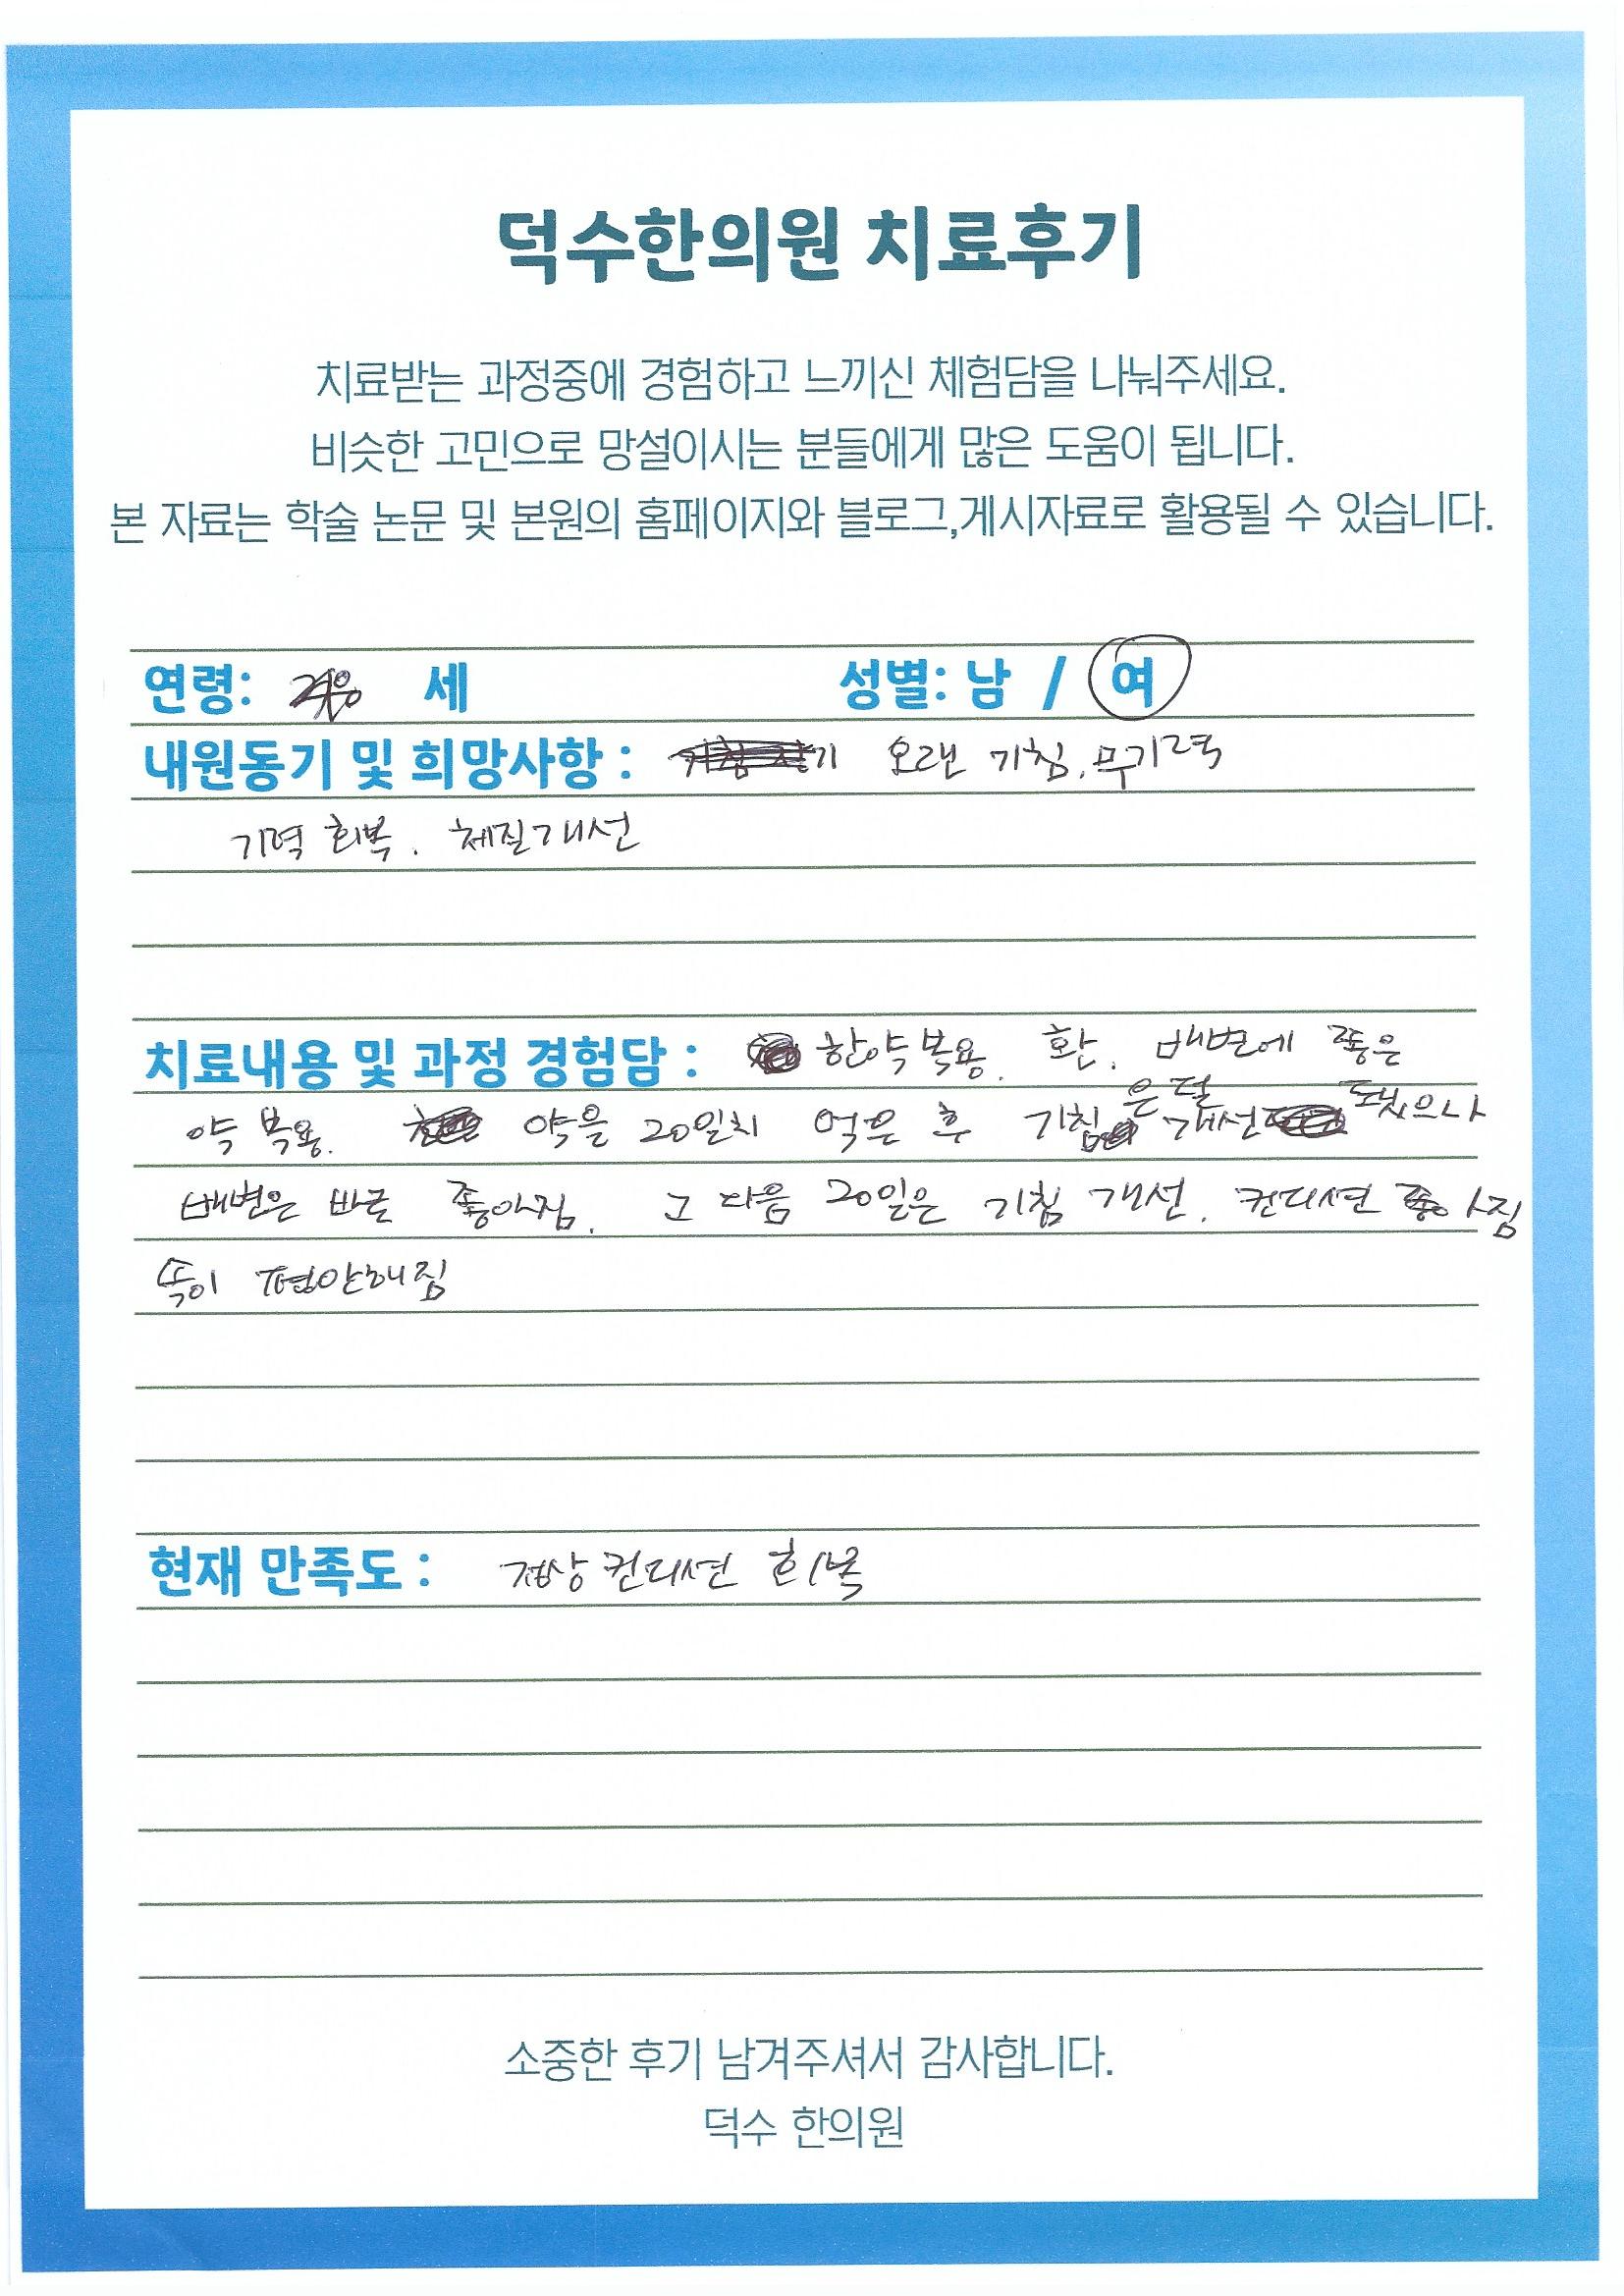 덕수한의원 치료후기
치료받는 과정중에 경험하고 느끼신 체험담을 나눠주세요.
비슷한 고민으로 망설이시는 분들에게 많은 도움이 됩니다.
본 자료는 학술 논문 및 본원의 홈페이지와 블로그,게시자료로 활용될 수 있습니다.
연령: 세 성별: 남 / 여
내원동기 및 희망사항 : 오랜 기침, 무기력
기력 회복. 체질개선
치료내용 및 과정 경험담 : 한약 복용. 환. 배변에 좋은
약 복용. 약을 20일치 먹은 후 기침은 덜 개선됐으나
배변은 바로 좋아짐. 그 다음 20일은 기침 개선. 컨디션 좋아짐
속이 편안해짐
현재 만족도 : 정상 컨디션 회복
소중한 후기 남겨주셔서 감사합니다.
덕수 한의원